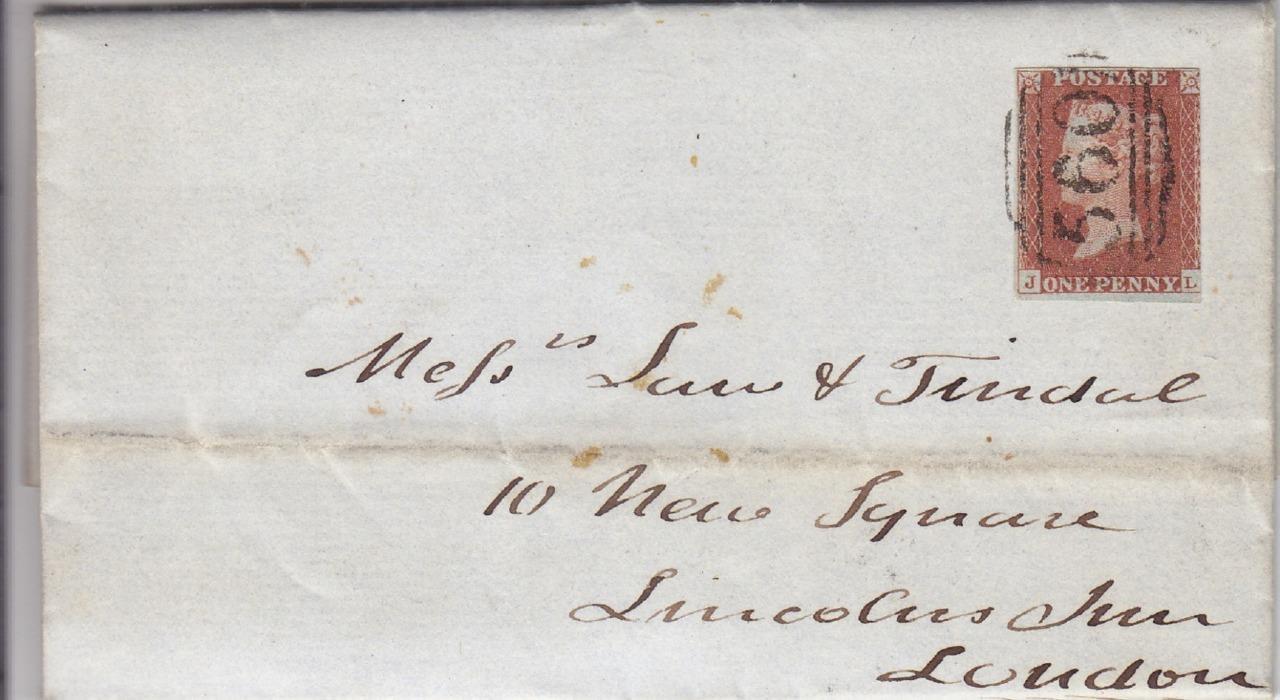 POSTAGE
560
J ONE PENNY. L
Messrs Law & Tindal
10 New Square
Lincolns Inn
London